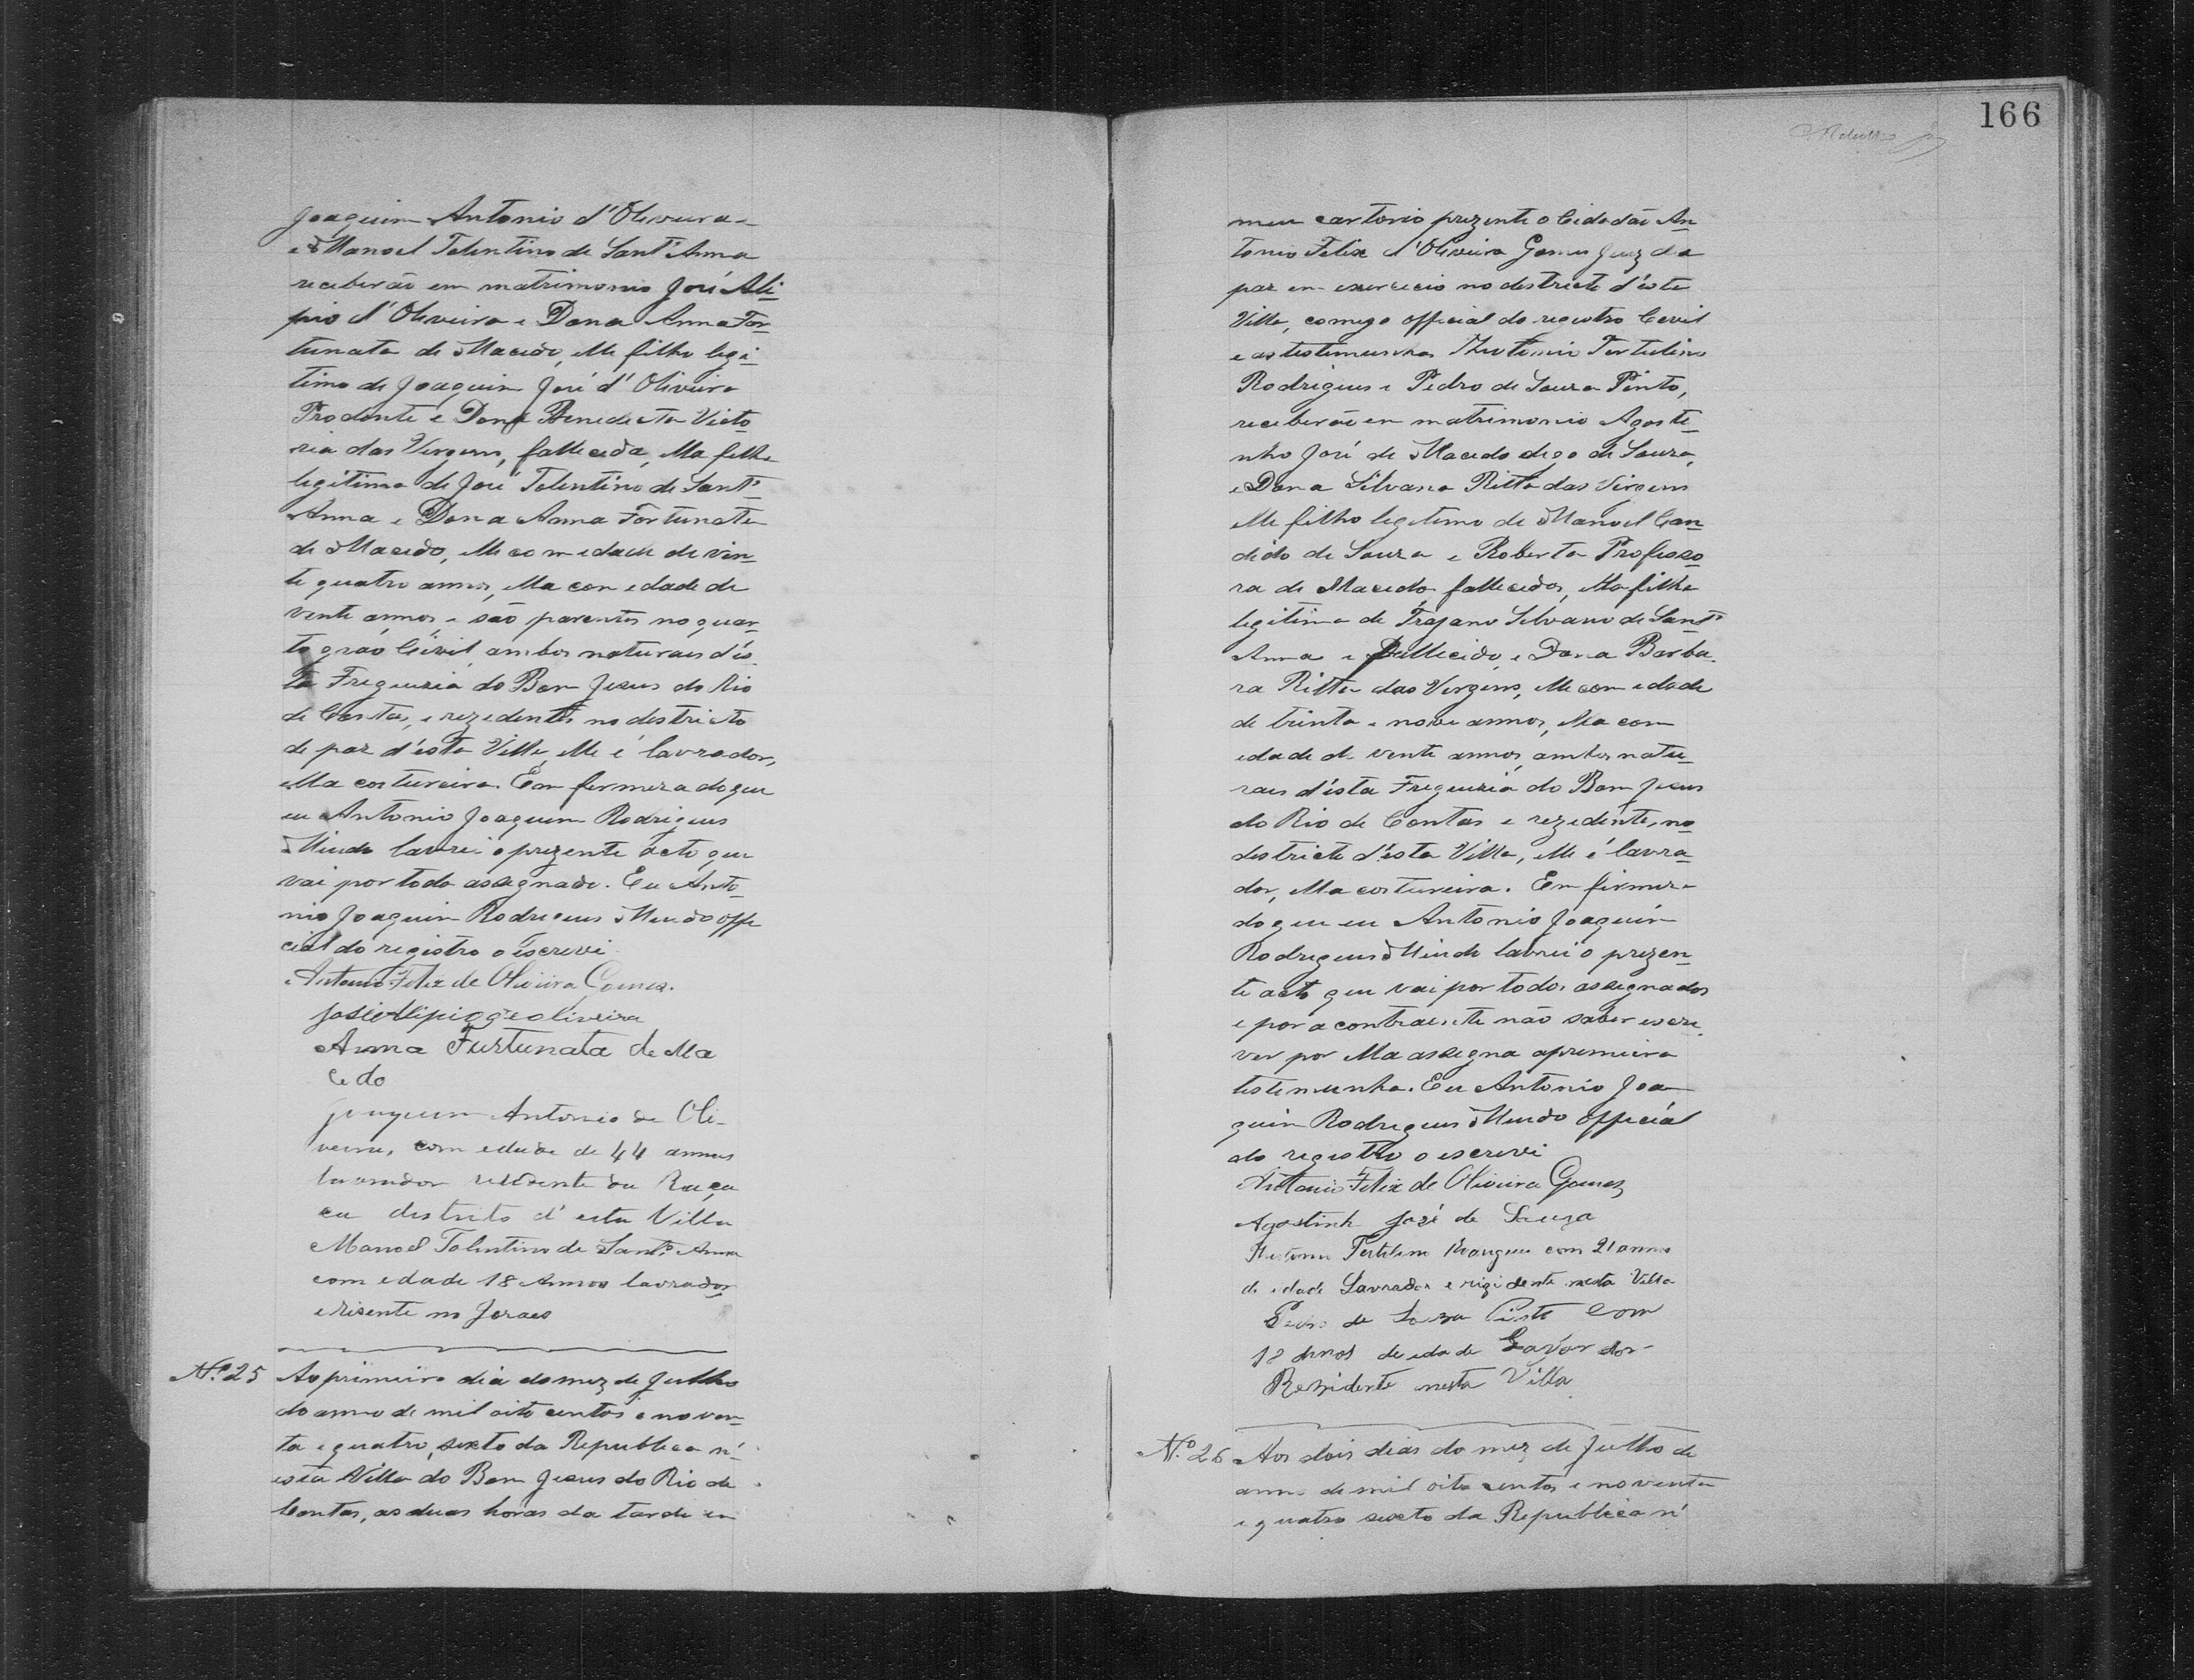 Joaquim Antonio d'Oliveira
e Manoel Tolentino de Sant'Anna
receberão em matrimonio José Ali-
pio d'Oliveira e Dona Anna For-
tunata de Macedo, elle filho legi-
timo de Joaquim José d'Oliveira
Prodente e Dona Benedicta Victo-
ria das Virgens, fallecida, ella filha
legitima de José Tolentino de Sant'
Anna e Dona Anna Fortunata
de Macedo, elle com edade de vin-
te quatro annos, ella com edade de
vente annos, e são parentes no quar-
to gráo Civil, ambos naturaes d'es-
ta Freguezia do Bom Jesus do Rio
de Contas, e rezedentes no destricto
de paz d'esta Villa, elle é lavrador,
ella costureira. Em fermeza do que
eu Antonio Joaquim Rodrigues
lavrei o prezente acto que
vai por todo assegnado. Eu Anto-
nio Joaquim Rodrigues offi
cial do registro o escrevi
Antonio Felix de Oliveira Gomes.
José Alipio de oliveira
Anna Furtunata de Ma
cedo
Joaquim Antonio de Oli-
veira, com edade de 44 annos
lavrador rezidente da
destrito d'esta Villa
Manoel Tolentino de Sant'Anna
com edade 18 Annos lavrador
e risente no Jeraes
Nº 25 Ao primeiro dia do mez de Julho
do anno de mil oito centos e noven-
ta e quatro, sexto da Republica n'
esta Villa do Bom Jesus do Rio de
Contas, as duas horas da tarde em
166
meu cartorio prezente o Cidadão An-
tonio Felix d'Oliveira Gomes Juiz da
paz em exercicio no destricto d'esta
Villa, comigo official do registro Cevil
e as testemunhas Tertulino
Rodrigues e Pedro de Souza Pinto,
receberão em matrimonio Agoste-
nho José de Macedo digo de Souza,
e Dona Silvana Ritta das Virgens
elle filho legetimo de Manoel Can-
dido de Souza e Roberta Professo-
ra de Macedo, fallecidos, ella filha
legitima de Trajano Silvano de Sant'
Anna e fallecido, e Dona Barba-
ra Ritta das Vergens, elle com edade
de trinta e nove annos, ella com
edade de vente annos, ambos natu-
raes d'esta Freguezia do Bom Jesus
do Rio de Contas e rezedentes, no
destricto d'esta Villa, elle é lavra-
dor, ella costureira. Em firmeza
do que eu Antonio Joaquim
Rodrigues lavrei o prezen-
te acto que vai por todos assegnados
e por a contraente não saber escre-
ver por ella assegna a premeira
testemunha. Eu Antonio Joa-
quim Rodrigues official
do registro o escrevi
Antonio Felix de Oliveira Gomes
Agostinho José de Souza
com 21 annos
de edade Lavrador e rizidente nesta Villa
Pedro de Souza Pinto Com
18 Annos de edade Lavrador
Rezidente nesta Villa
Nº 26 Aos dois dias do mez de Julho de
anno de mil oito centos e noventa
e quatro sexto da Republica n'